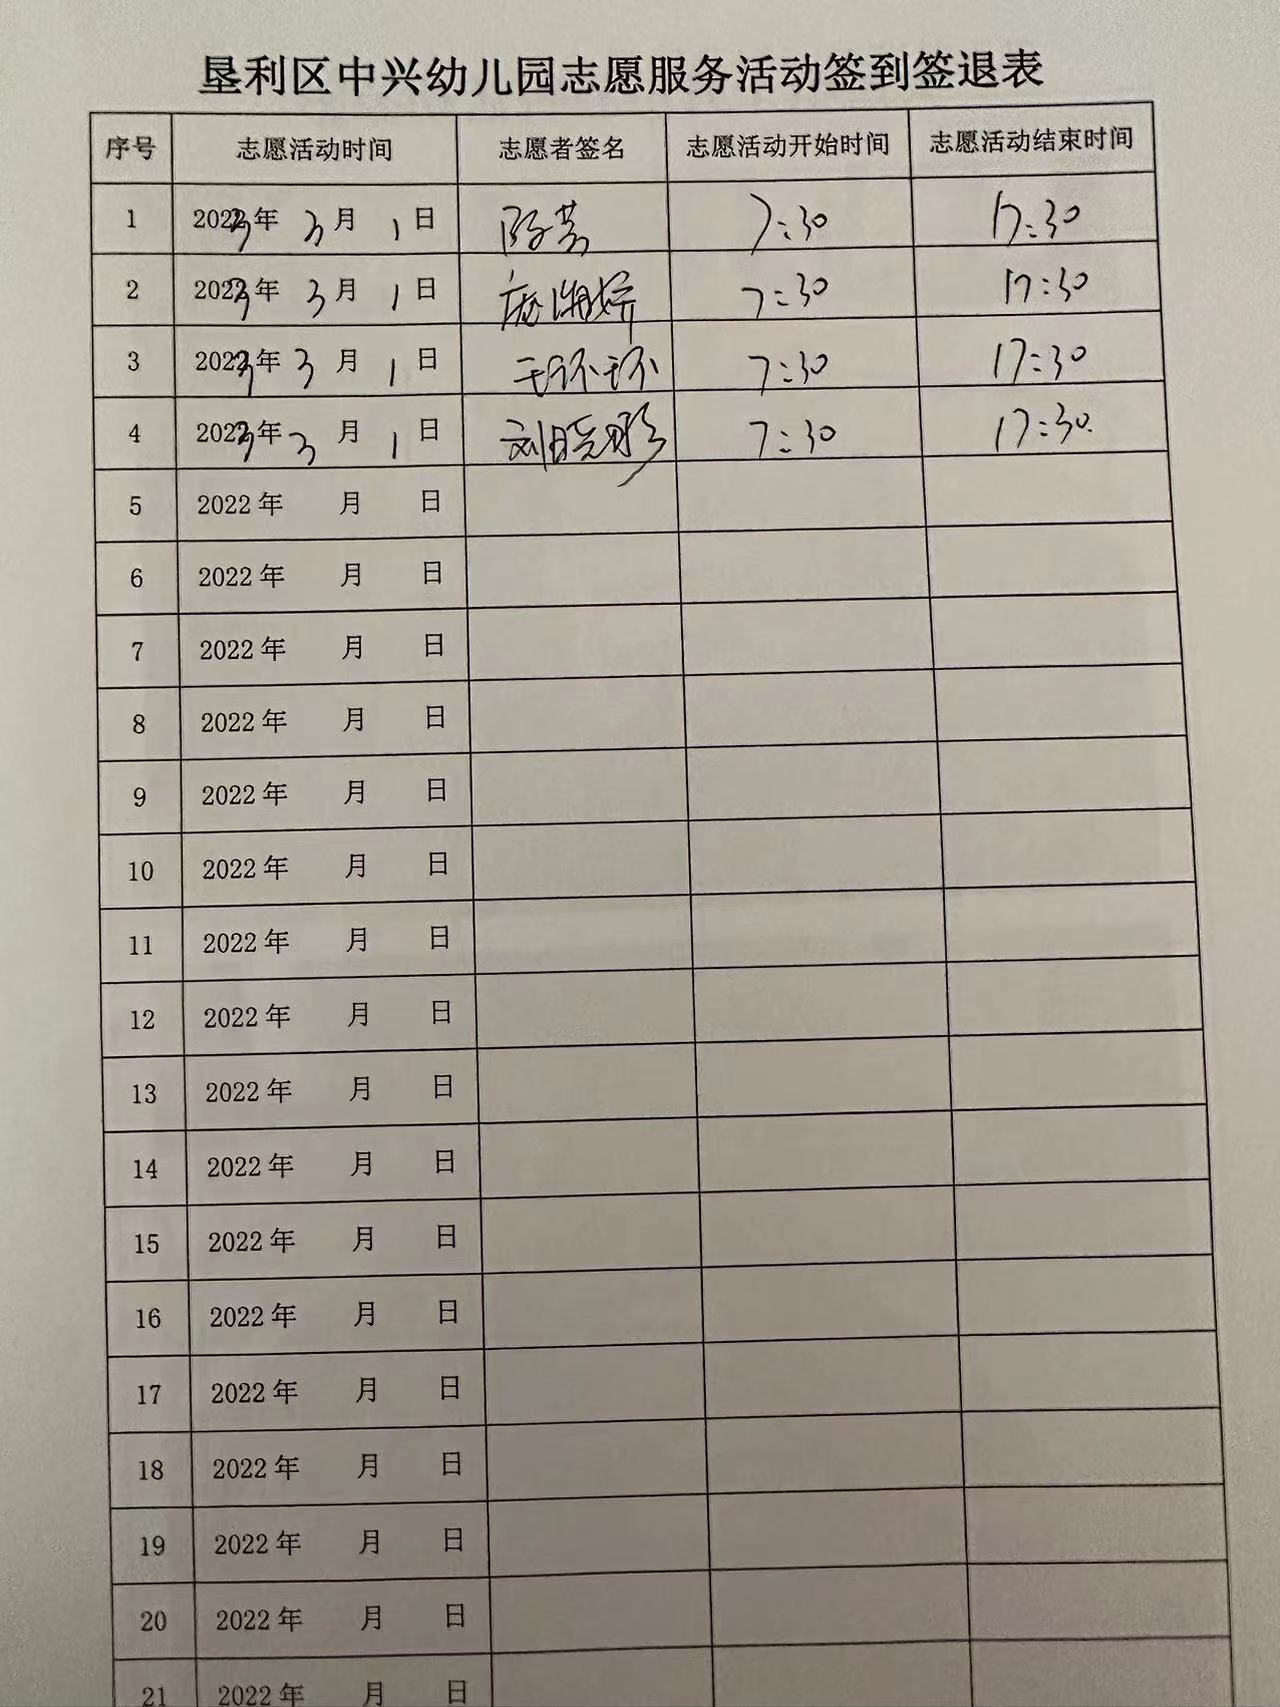 垦利区中兴幼儿园志愿服务活动签到签退表
序号 志愿活动时间 志愿者签名 志愿活动开始时间 志愿活动结束时间
1 2023年 3月 1日 陈芸 7:30 17:30
2 2023年 3月 1日 7:30 17:30
3 2023年 3月 1日 王环环 7:30 17:30
4 2023年 3月 1日 刘晓彤 7:30 17:30
5 2022年 月 日
6 2022年 月 日
7 2022年 月 日
8 2022年 月 日
9 2022年 月 日
10 2022年 月 日
11 2022年 月 日
12 2022年 月 日
13 2022年 月 日
14 2022年 月 日
15 2022年 月 日
16 2022年 月 日
17 2022年 月 日
18 2022年 月 日
19 2022年 月 日
20 2022年 月 日
21 2022年 月 日